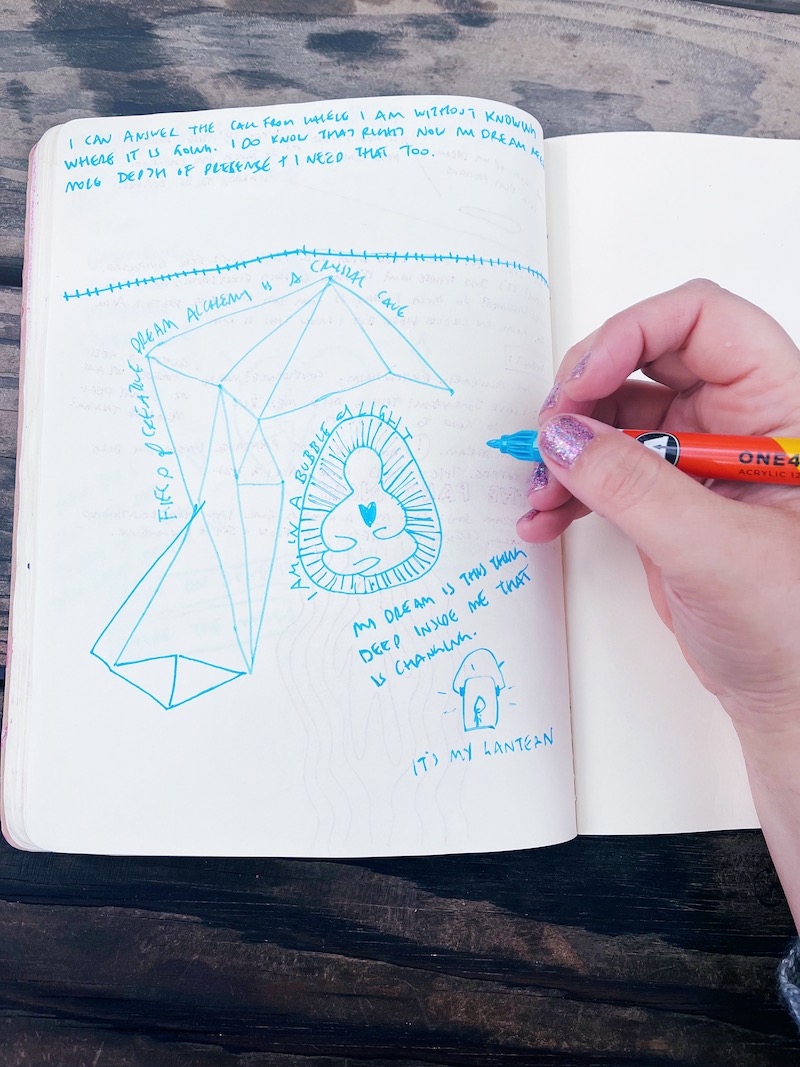 I CAN ANSWER THE CALL FROM WHERE I AM WITHOUT KNOWING
WHERE IT IS GOING. I DO KNOW THAT RIGHT NOW MY DREAM
MORE DEPTH OF PRESENSE + I NEED THAT TOO.
FIELD OF CREATABLE DREAM ALCHEMY IS A CRYSTAL CAVE
I AM IN A BUBBLE OF LIGHT
MY DREAM IS THIS THING
DEEP INSIDE ME THAT
IS CHANGING.
IT'S MY LANTERN
ONE4
ACRYLIC 12